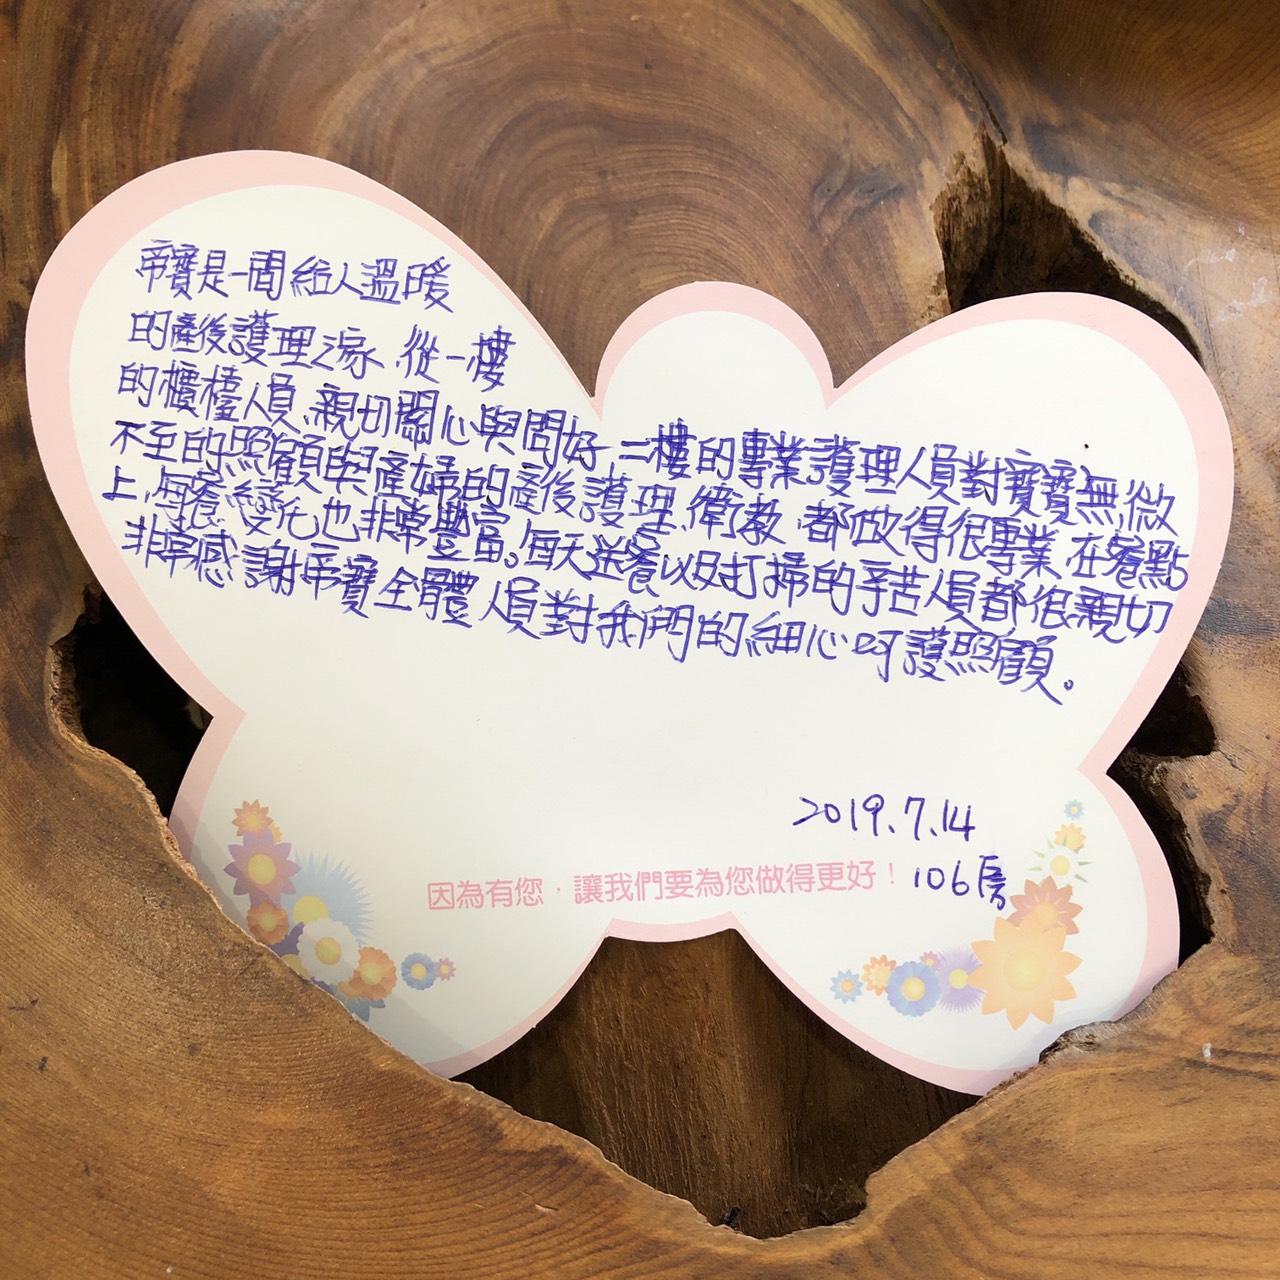 帝寶是一間給人溫暖
的產後護理之家、從一樓
的櫃檯人員、親切關心與問好、二樓的專業護理人員對寶寶無微
不至的照顧與產婦的產後護理、衛教、都做得很專業、在餐點
上、每餐變化也非常豐富。每天送餐以及打掃的辛苦人員都很親切
非常感謝帝寶全體人員對我們的細心呵護照顧。
2019.7.14
因為有您,讓我們要為您做得更好! 106房